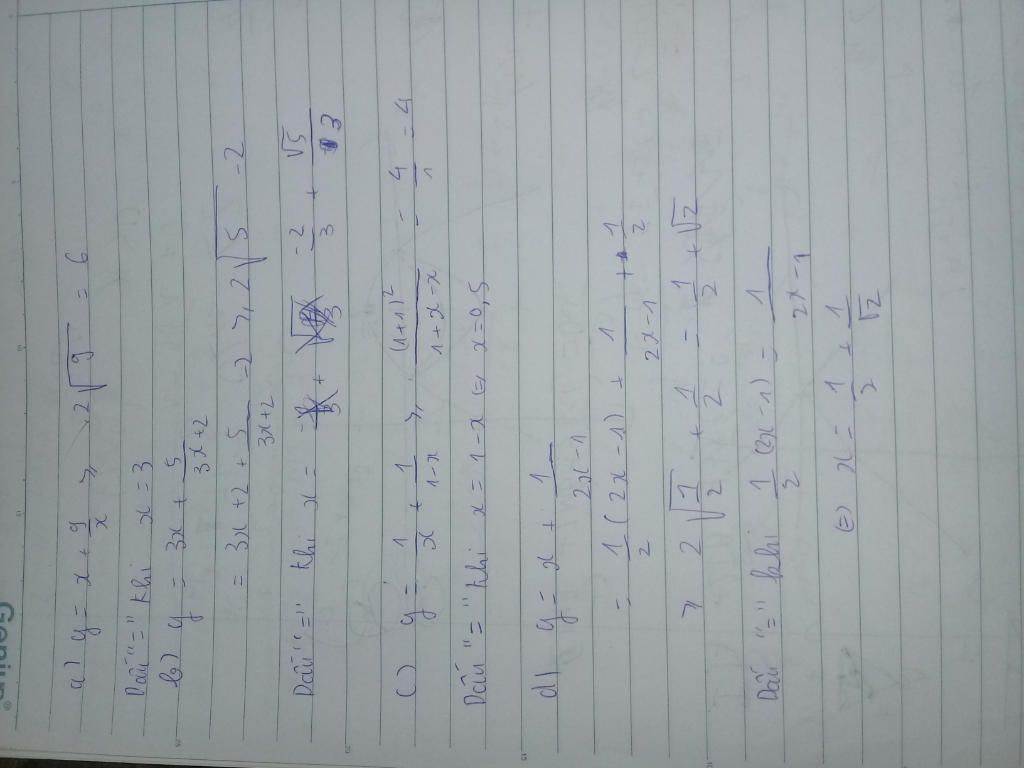 Genius
a) y = x + 9/x ≥ 2√9 = 6
Dấu "=" khi x = 3
b) y = 3x + 5/(3x+2)
= 3x+2 + 5/(3x+2) - 2 ≥ 2√5 - 2
Dấu "=" khi x = -2/3 + √5/3
c) y = 1/x + 1/(1-x) ≥ (1+1)²/(1+x-x) = 4/1 = 4
Dấu "=" khi x = 1-x ⇔ x = 0,5
d) y = x + 1/(2x-1)
= 1/2(2x-1) + 1/(2x-1) + 1/2
≥ 2√(1/2) + 1/2 = 1/2 + √2
Dấu "=" khi 1/2(2x-1) = 1/(2x-1)
⇔ x = 1/2 + 1/√2